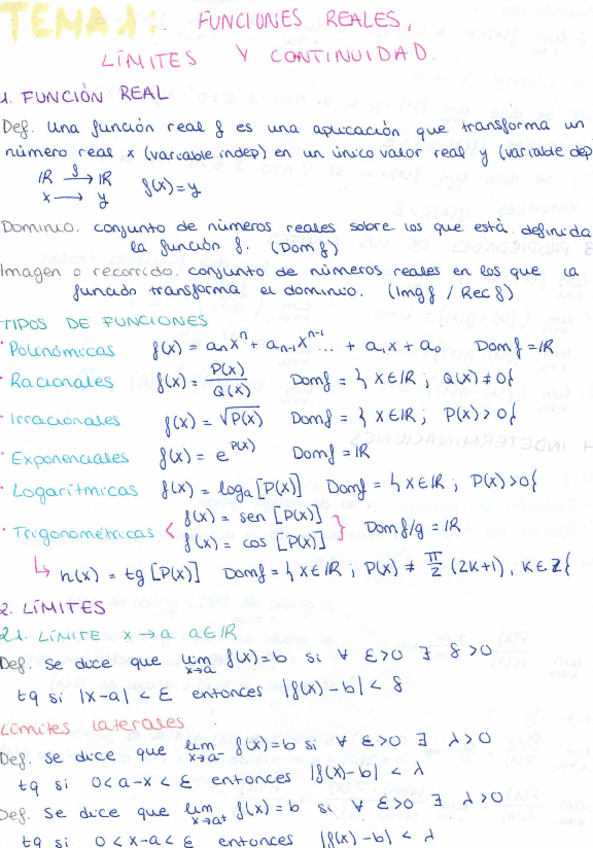 TEMA 1: FUNCIONES REALES,
LÍMITES Y CONTINUIDAD.
1. FUNCIÓN REAL
Def. Una función real f es una aplicación que transforma un
número real x (variable indep) en un único valor real y (variable dep
ℝ →f ℝ
x → y f(x)=y
Dominio. conjunto de números reales sobre los que está definida
la función f. (Dom f)
Imagen o recorrido. conjunto de números reales en los que la
función transforma el dominio. (Img f / Rec f)
TIPOS DE FUNCIONES
· Polinómicas f(x) = aₙxⁿ + aₙ₋₁xⁿ⁻¹ ... + a₁x + a₀ Dom f = ℝ
· Racionales f(x) = P(x)/Q(x) Dom f = { x∈ℝ ; Q(x) ≠ 0}
· Irracionales f(x) = √P(x) Dom f = { x∈ℝ ; P(x) > 0}
· Exponenciales f(x) = e^P(x) Dom f = ℝ
· Logarítmicas f(x) = logₐ [P(x)] Dom f = { x∈ℝ ; P(x) > 0}
· Trigonométricas < f(x) = sen [P(x)]
f(x) = cos [P(x)] } Dom f/g = ℝ
↳ h(x) = tg [P(x)] Dom f = { x∈ℝ ; P(x) ≠ π/2 (2K+1), K∈ℤ}
2. LÍMITES
2.1. LÍMITE x→a a∈ℝ
Def. Se dice que lim x→a f(x) = b si ∀ ε>0 ∃ δ>0
tq si |x-a| < ε entonces |f(x)-b| < δ
Límites laterales
Def. Se dice que lim x→a⁻ f(x) = b si ∀ ε>0 ∃ λ>0
tq si 0<a-x<ε entonces |f(x)-b| < λ
Def. Se dice que lim x→a⁺ f(x) = b si ∀ ε>0 ∃ λ>0
tq si 0<x-a<ε entonces |f(x)-b| < λ